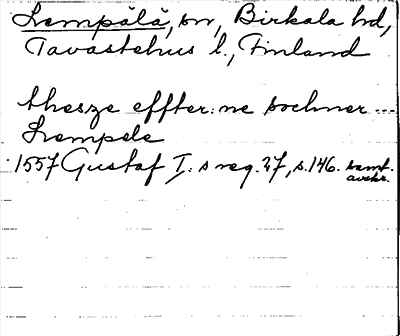 Lempälä, sn, Birkala hd,
Tavastehus l., Finland
thesze effter:ne sochner ...
Lempele
1557 Gustaf I:s reg. 27, s. 146. samt.
avskr.